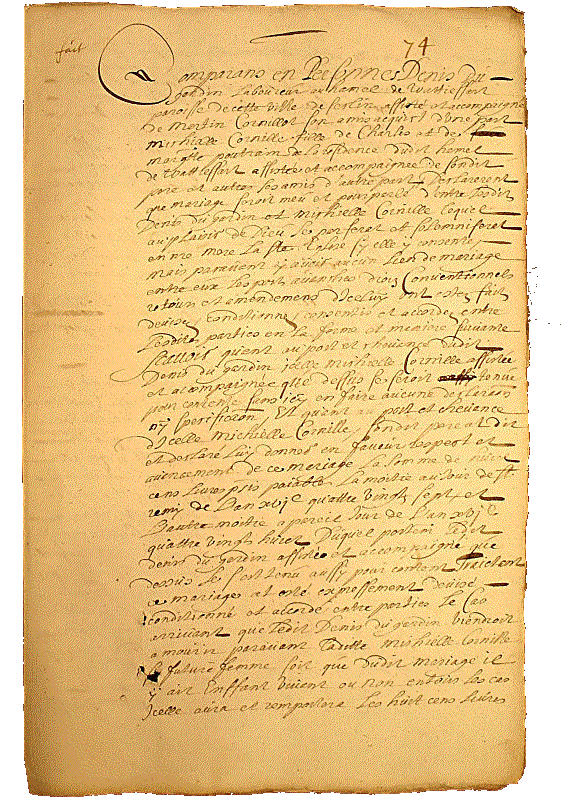 fait
74
Comparans en Personnes Denis Du
gardin Laboureur au hamel de Wattieffart
paroisse de cette ville de assisté et accompagné
de Martin Cornillot son amis acquist d'une part
Mishielle Cornille fille de Charles et de
margtte poultrain de la residence dudit hamel
de Wattieffart assistée et accompagnée de sondit
pere et autres ses amis d'autre part Declarerent
que mariage seroit meu et pourparlé d'entre lesdits
Denis du gardin et mishielle Cornille lequel
au plaisir de Dieu se parferat et solemniserat
en nre mere La Ste Eglise s'y elle y consente
mais paravant y avoir aucun Lien de mariage
entre eux les port avanthes dots Conventionnels
retours et amendemens d'Iceluy ont estez fait
devisez conditionnez consentis et accordez entre
lesdites parties en la forme et maniere suivante
Scavoir quant au port et chevance dudit
Denis du gardin icelle mishielle Cornille assistée
et accompagnée que dessus se seroit tenue
pour contente sans icy en faire aucune declaration
ny specification Et quant au port et chevance
d'Icelle Michielle Cornille sondit pere at dit
et declaré luy donner en faveur et
avancement de ce mariage La somme de huict
cens Livres pris paiable La moitié au Jour de St
remy de L'an xvjC quattre vingt sept et
L'autre moitié a pareil Jour de L'an xvjC
quattre vingt huict Duquel portem Ledit
denis du gardin assisté et accompagné que
dessus s'est tenu aussy pour content Traictant
ce mariage at esté expressement devisé
conditionné et accordé entre parties Le Cas
arrivant que Ledit Denis du gardin viendroit
a mourir paravant Ladite mishielle Cornille
sa future femme soit que dudit mariage il
y ait Enffant vivant ou non en tous les cas
Icelle aura et remportera Les huit cens Livres